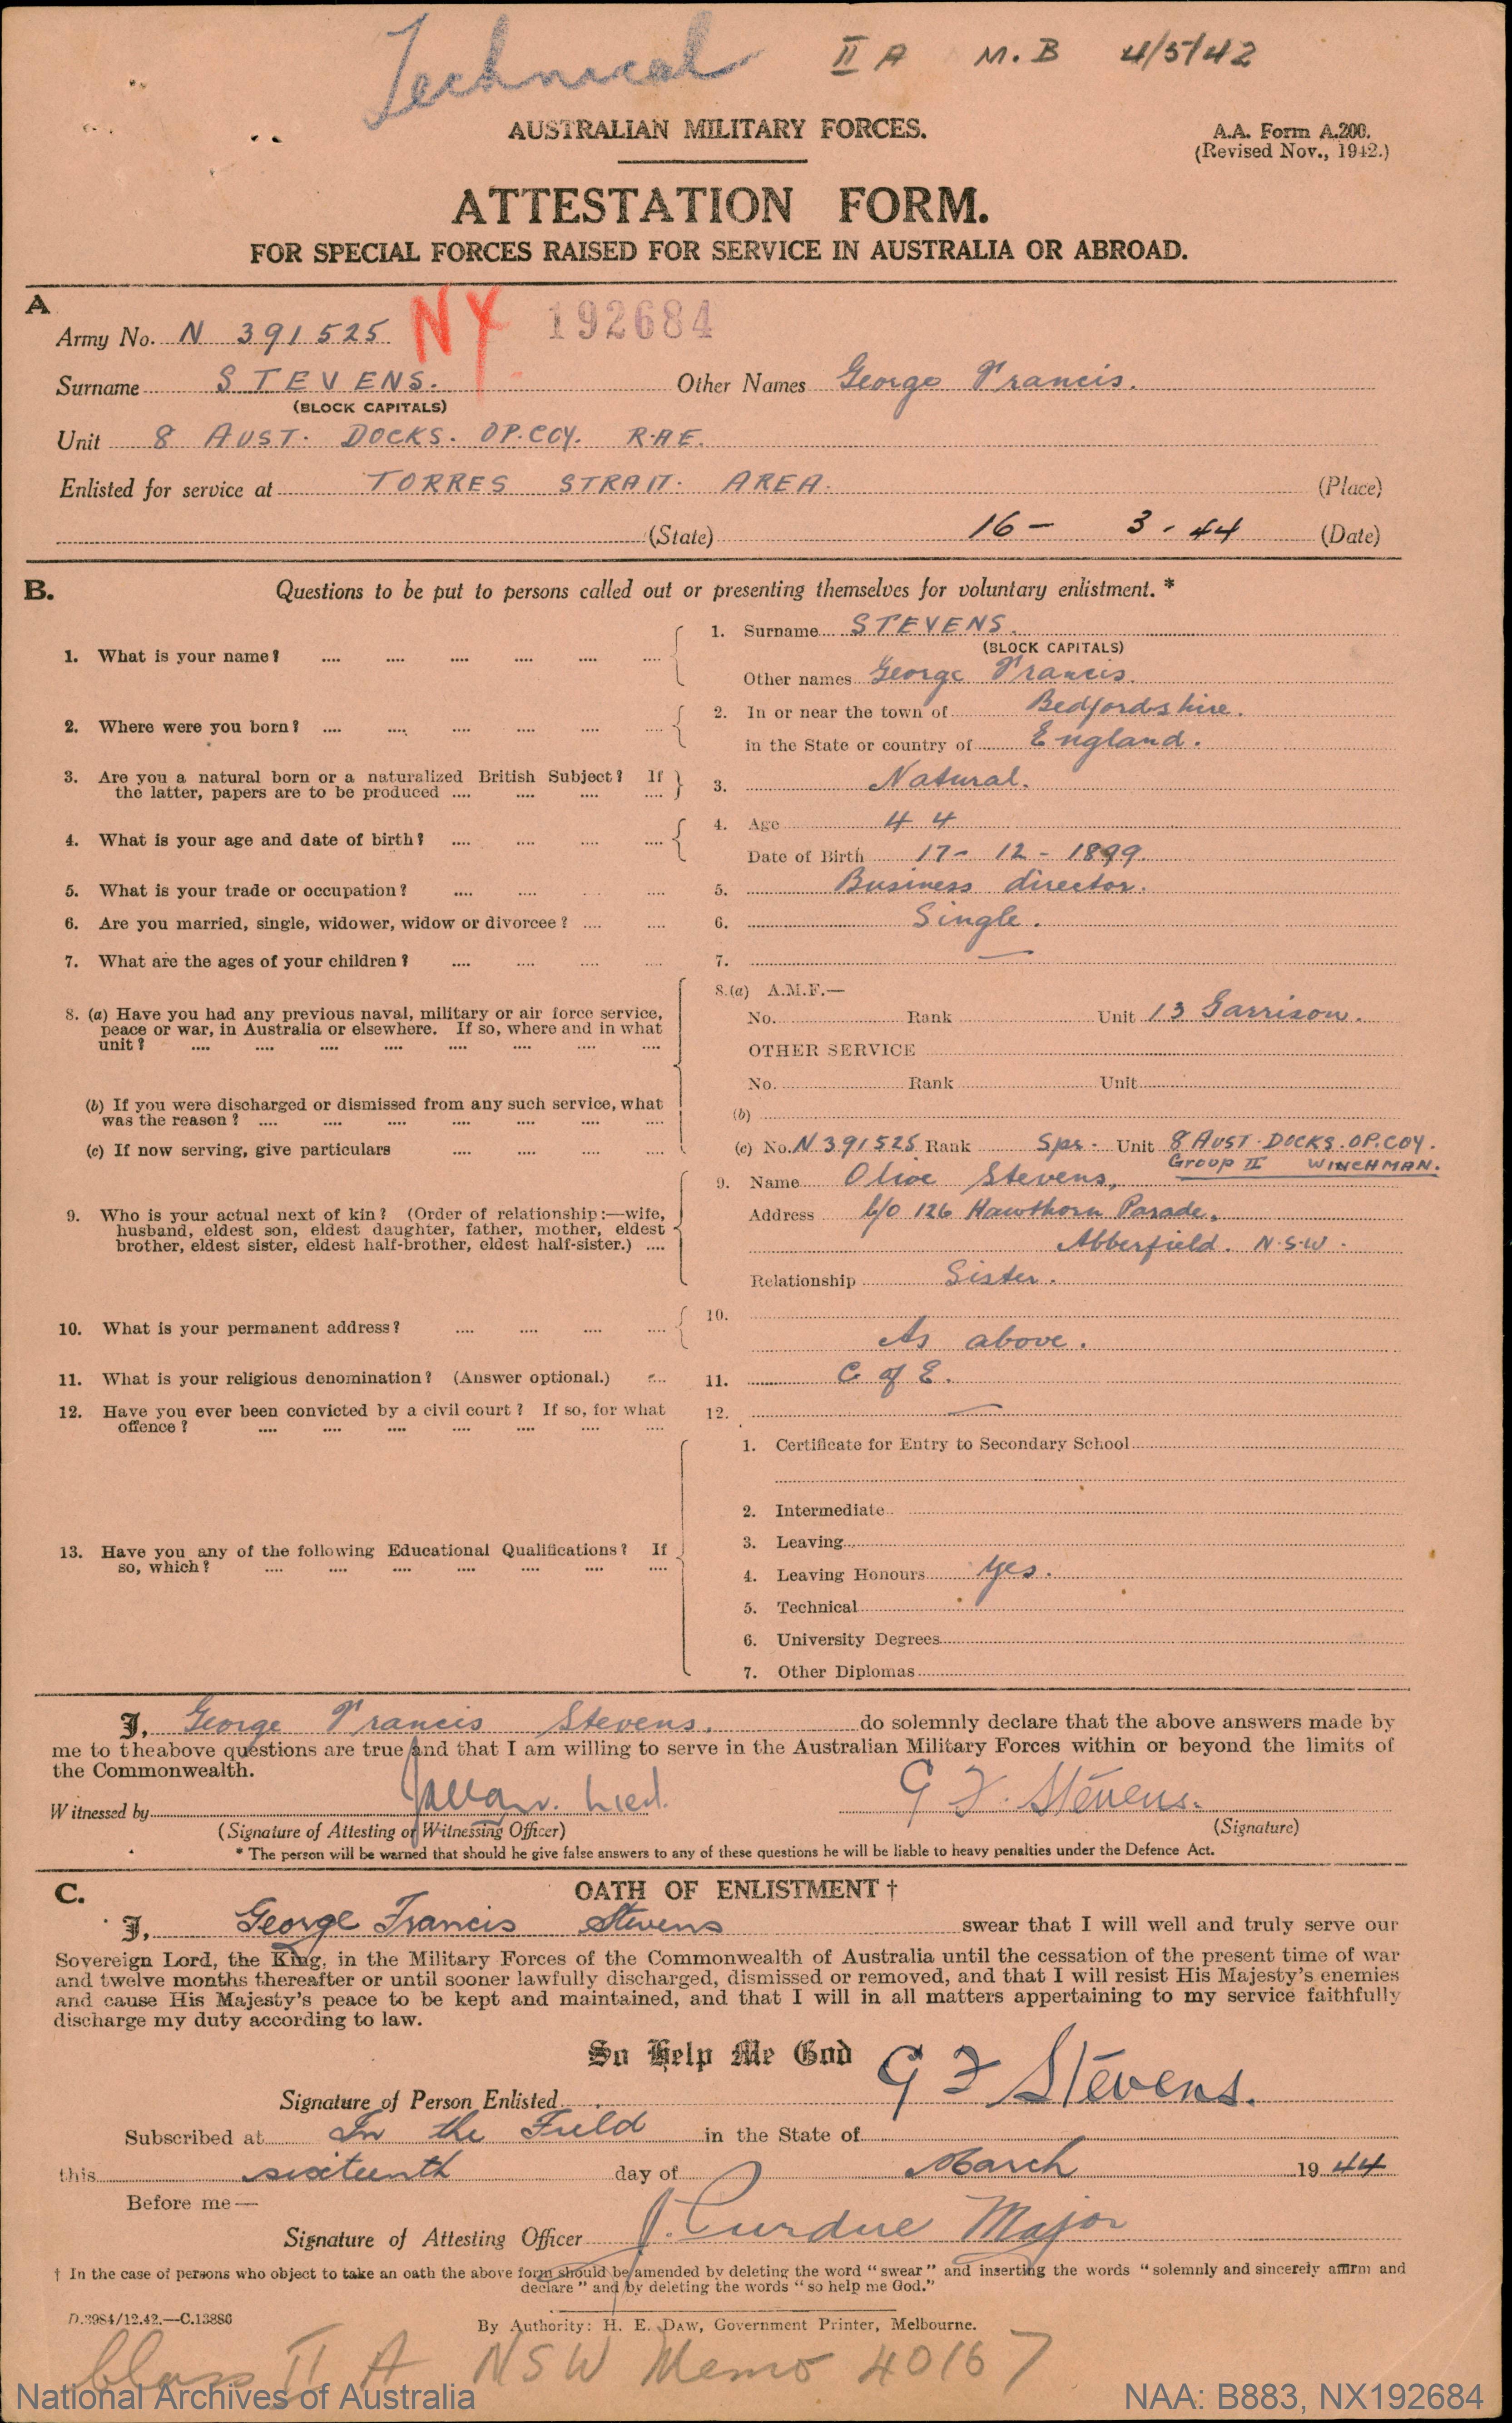 Technical II A M.B 4/5/42
AUSTRALIAN MILITARY FORCES.
A.A. Form A.200.
(Revised Nov., 1942.)
ATTESTATION FORM.
FOR SPECIAL FORCES RAISED FOR SERVICE IN AUSTRALIA OR ABROAD.
A
Army No. N 391525 NX 192684
Surname STEVENS. Other Names George Francis.
(BLOCK CAPITALS)
Unit 8 AUST. DOCKS. OP. COY. R.A.E.
Enlisted for service at TORRES STRAIT. AREA. (Place)
(State) 16 - 3 - 44 (Date)
B. Questions to be put to persons called out or presenting themselves for voluntary enlistment.*
1. What is your name? .... 1. Surname STEVENS.
(BLOCK CAPITALS)
Other names George Francis.
2. Where were you born? .... 2. In or near the town of Bedfordshire.
in the State or country of England.
3. Are you a natural born or a naturalized British Subject? If
the latter, papers are to be produced .... 3. Natural.
4. What is your age and date of birth? .... 4. Age 44
Date of Birth 17 - 12 - 1899.
5. What is your trade or occupation? .... 5. Business director.
6. Are you married, single, widower, widow or divorcee? .... 6. Single.
7. What are the ages of your children? .... 7. —
8. (a) Have you had any previous naval, military or air force service,
peace or war, in Australia or elsewhere. If so, where and in what
unit? ....
8. (a) A.M.F.—
No. Rank Unit 13 Garrison.
OTHER SERVICE
No. Rank Unit
(b) If you were discharged or dismissed from any such service, what
was the reason? .... (b)
(c) If now serving, give particulars .... (c) No. N391525 Rank Spr. Unit 8 AUST. DOCKS. OP. COY.
Group II WINCHMAN.
9. Who is your actual next of kin? (Order of relationship:—wife,
husband, eldest son, eldest daughter, father, mother, eldest
brother, eldest sister, eldest half-brother, eldest half-sister.) ....
9. Name Olive Stevens,
Address C/o 126 Hawthorn Parade.
Abberfield. N.S.W.
Relationship Sister.
10. What is your permanent address? .... 10. As above.
11. What is your religious denomination? (Answer optional.) .... 11. C of E.
12. Have you ever been convicted by a civil court? If so, for what
offence? .... 12. —
13. Have you any of the following Educational Qualifications? If
so, which? ....
1. Certificate for Entry to Secondary School
2. Intermediate
3. Leaving
4. Leaving Honours yes.
5. Technical
6. University Degrees
7. Other Diplomas
I, George Francis Stevens. do solemnly declare that the above answers made by
me to theabove questions are true and that I am willing to serve in the Australian Military Forces within or beyond the limits of
the Commonwealth.
Witnessed by G F. Stevens.
(Signature of Attesting or Witnessing Officer) (Signature)
* The person will be warned that should he give false answers to any of these questions he will be liable to heavy penalties under the Defence Act.
C. OATH OF ENLISTMENT †
I, George Francis Stevens swear that I will well and truly serve our
Sovereign Lord, the King, in the Military Forces of the Commonwealth of Australia until the cessation of the present time of war
and twelve months thereafter or until sooner lawfully discharged, dismissed or removed, and that I will resist His Majesty's enemies
and cause His Majesty's peace to be kept and maintained, and that I will in all matters appertaining to my service faithfully
discharge my duty according to law.
So Help Me God
Signature of Person Enlisted G F Stevens.
Subscribed at In the Field in the State of
this sixteenth day of March 1944
Before me—
Signature of Attesting Officer J. Purdue Major
† In the case of persons who object to take an oath the above form should be amended by deleting the word "swear" and inserting the words "solemnly and sincerely affirm and
declare" and by deleting the words "so help me God."
D.3984/12.42.—C.13886
By Authority: H. E. DAW, Government Printer, Melbourne.
Class II A NSW Memo 40167
National Archives of Australia
NAA: B883, NX192684